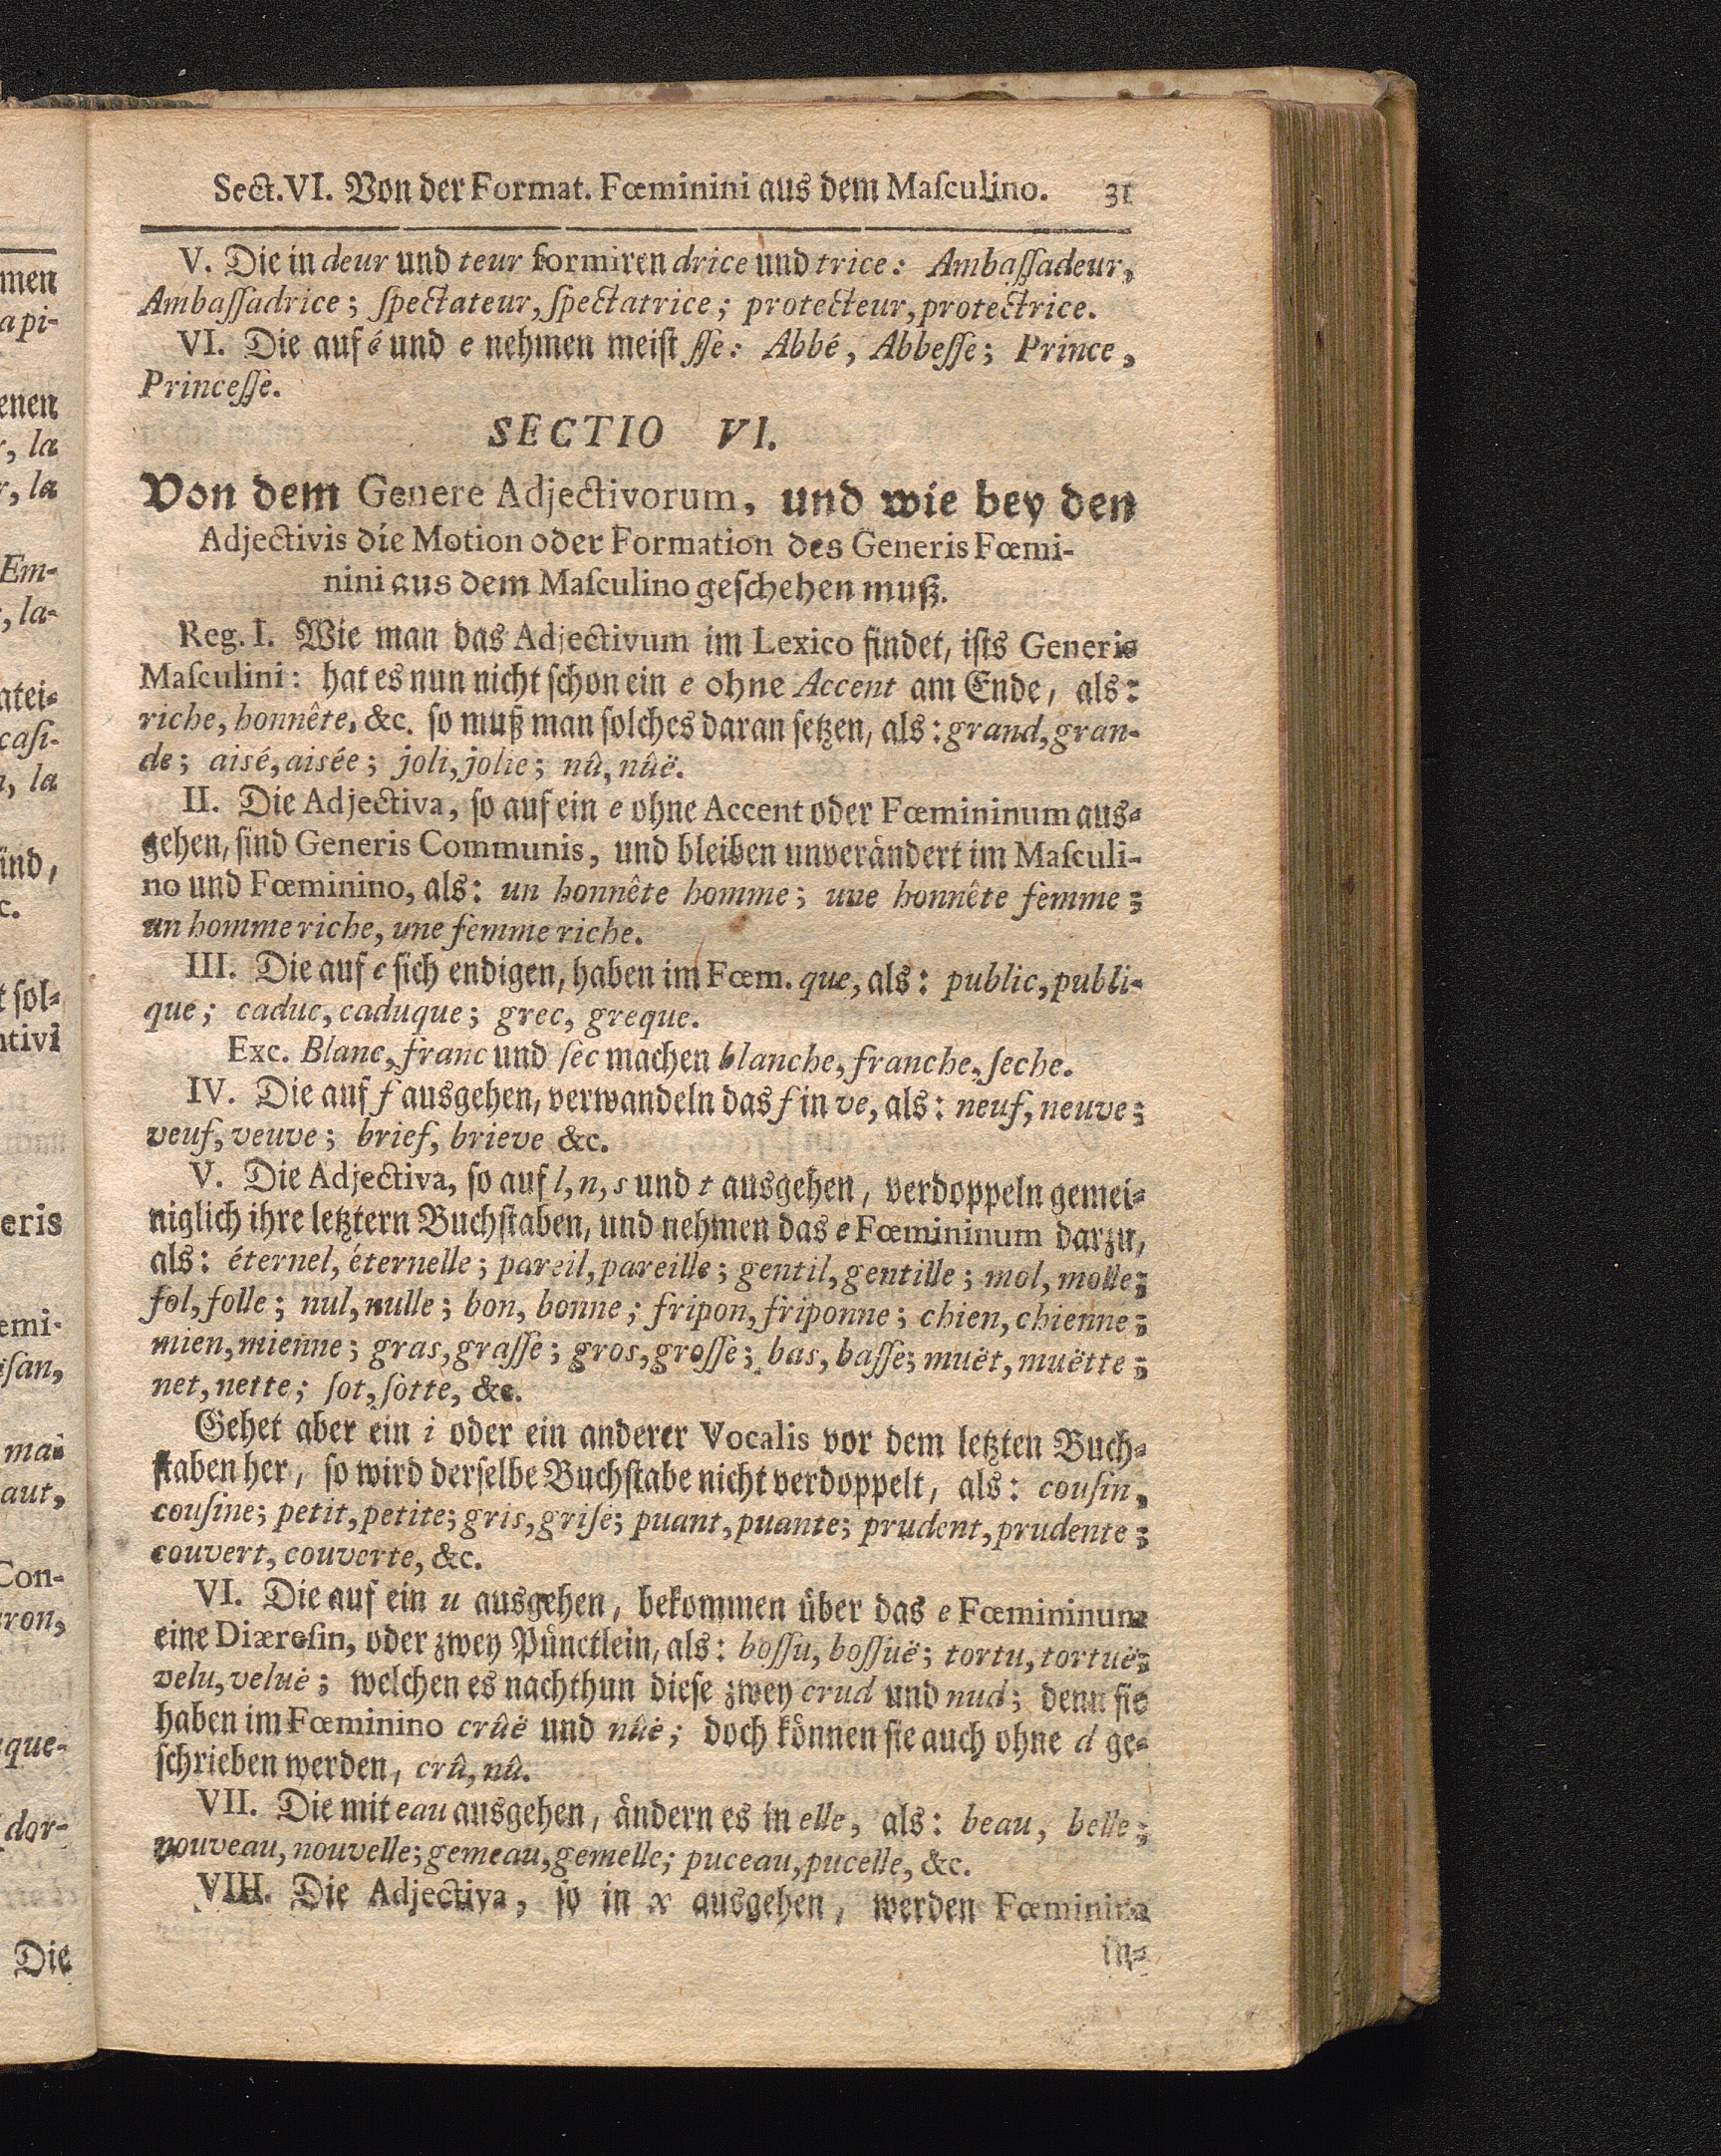 Sect. VI. Von der Format. Fœminini aus dem Maſculino. 31
V. Die in deur und teur formiren drice und trice: Ambaſſadeur,
Ambaſſadrice; ſpectateur, ſpectatrice; protecteur, protectrice.
VI. Die auf é und e nehmen meiſt ſſe: Abbé, Abbeſſe; Prince,
Princeſſe.
SECTIO VI.
Von dem Genere Adjectivorum, und wie bey den
Adjectivis die Motion oder Formation des Generis Fœmi-
nini aus dem Maſculino geſchehen muß.
Reg. I. Wie man das Adjectivum im Lexico findet, iſts Generis
Maſculini: hat es nun nicht ſchon ein e ohne Accent am Ende, als:
riche, honnête, &c. ſo muß man ſolches daran ſetzen, als: grand, gran-
de; aisé, aisée; joli, jolie; nû, nûë.
II. Die Adjectiva, ſo auf ein e ohne Accent oder Fœmininum aus-
gehen, ſind Generis Communis, und bleiben unverändert im Maſculi-
no und Fœminino, als: un honnête homme; une honnête femme;
un homme riche, une femme riche.
III. Die auf c ſich endigen, haben im Fœm. que, als: public, publi-
que; caduc, caduque; grec, greque.
Exc. Blanc, franc und ſec machen blanche, franche, ſeche.
IV. Die auf f ausgehen, verwandeln das f in ve, als: neuf, neuve;
veuf, veuve; brief, brieve &c.
V. Die Adjectiva, ſo auf l, n, s und t ausgehen, verdoppeln gemei-
niglich ihre letztern Buchſtaben, und nehmen das e Fœmininum darzu,
als: éternel, éternelle; pareil, pareille; gentil, gentille; mol, molle;
fol, folle; nul, nulle; bon, bonne; fripon, friponne; chien, chienne;
mien, mienne; gras, graſſe; gros, groſſe; bas, baſſe; muët, muëtte;
net, nette; ſot, ſotte, &c.
Gehet aber ein i oder ein anderer Vocalis vor dem letzten Buch-
ſtaben her, ſo wird derſelbe Buchſtabe nicht verdoppelt, als: couſin,
couſine; petit, petite; gris, griſe; puant, puante; prudent, prudente;
couvert, couverte, &c.
VI. Die auf ein u ausgehen, bekommen über das e Fœmininum
eine Diæreſin, oder zwey Pünctlein, als: boſſu, boſſuë; tortu, tortuë;
velu, veluë; welchen es nachthun dieſe zwey crud und nud; denn ſie
haben im Fœminino crûë und nûë; doch können ſie auch ohne d ge-
ſchrieben werden, crû, nû.
VII. Die mit eau ausgehen, ändern es in elle, als: beau, belle;
nouveau, nouvelle; gemeau, gemelle; puceau, pucelle, &c.
VIII. Die Adjectiva, ſo in x ausgehen, werden Fœminina
in-